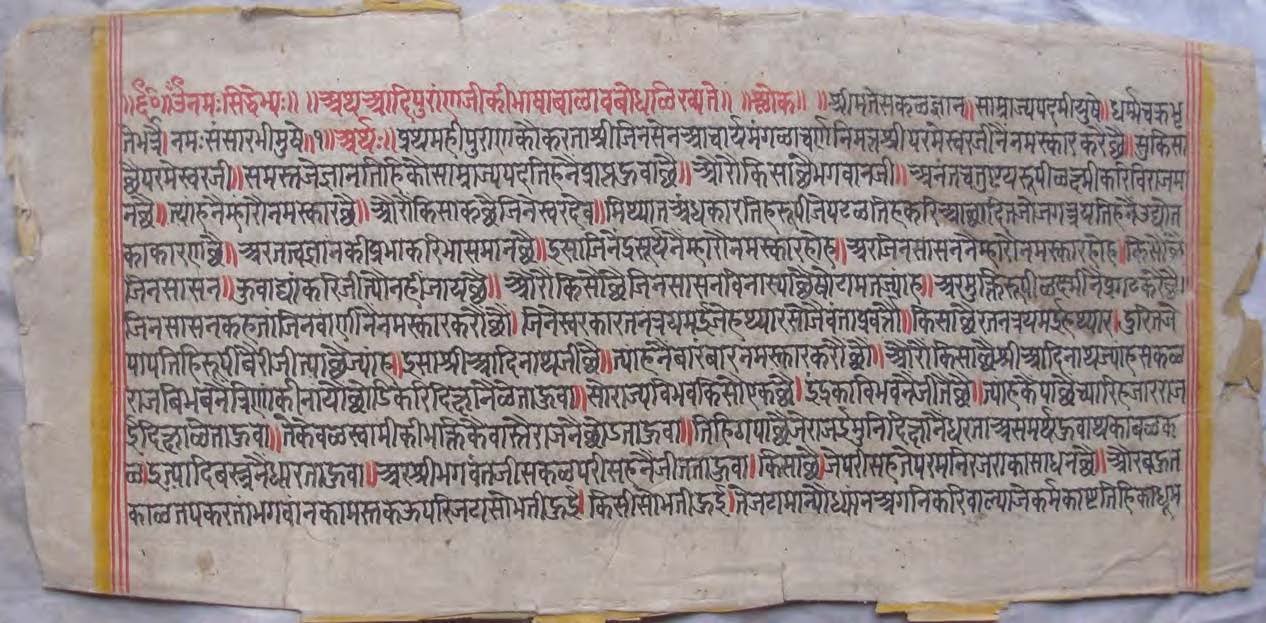 ॥ॐनमःसिद्धेभ्यः॥ ॥अथआदिपुराणजीकीभाषाबाळावबोधळिख्यते॥ ॥श्लोक॥ ॥श्रीमतेसकळज्ञान॥साम्राज्यपदमीयुषे॥धर्मचक्रभृ
तेभर्त्रे।नमःसंसारभीमुषे॥१॥अर्थः॥प्रथमहीपुराणकौकरताश्रीजिनसेनआचार्यमंगळाचर्णनिमतश्रीपरमेस्वरजीनैनमस्कारकरैछै॥सुकिसा
छैपरमेस्वरजी॥समस्तजेज्ञानतिहिकौसाम्राज्यपदतिहनैप्राप्तऊवाछै॥औरौकिसाछैभगवानजी॥अनंतचतुष्टयरूपीळक्ष्मीकरिविराजमा
नछै॥त्यांहनैम्हारौनमस्कारछै॥औरौकिसाकछैजिनेस्वरदेव॥मिथ्यातअंधकारतिहरूपीजेपटळतिहकरिआछादितजोजगत्रयतिहनैउद्योत
काकारणछै॥अरतत्वज्ञानकीप्रभाकरिभासमानछै॥इसाजिनेंद्रसूर्यनैम्हारौनमस्कारहोह॥अरजिनसासननैम्हारौनमस्कारहोह॥किसोछै
जिनसासन॥कुवाद्यांकरिजीत्यौनहीजायछै॥औरौकिसोछैजिनसासनविनास्याछैषोटामतज्यांह॥अरमुक्तिरूपीळक्ष्मीनैप्रगटकरैछै।
जिनसासनकहतांजिनवाणीनैनमस्कारकरौछौ।जिनेस्वरकारतनत्रयमईजेहथ्यारसोजैवंताप्रवर्तौ॥किसाछैरतनत्रयमईहथ्यार।दुरितजे
पापतिहिरूपीबैरीजीत्याछैज्यांह॥इसाश्रीआदिनाथजीछै॥त्याहनैबारंबारनमस्कारकरौछौ॥औरौकिसाछैश्रीआदिनाथज्यांहसकळ
राजविभवनैत्रिणांकीनायौछोडिकरिदिक्ष्यानैळेताऊवा॥सोराज्यविभवकिसोएकछै।इंद्रकाविभवनैजीतैछै॥ज्याहकैपाछैच्यारिहजारराज
दिक्ष्याळेताऊवा॥तेकेवळस्वामीकीभक्तिकैवास्तैराजनैछोडताऊवा॥तिहिंपाछैजेराजईमुनिदिक्ष्यानैधरताअसमर्थऊवाथकाबळक
ळइत्यादिबस्त्रनैध्यारताऊवा॥अरश्रीभगवंतजीसकळपरीसहनैजीतताऊवा।किसाछै।जेपरीसहजेपरमनिरजराकासाधनछै॥औरबऊत
काळतपकरतांभगवांनकामस्तकऊपरिजटासोभतीऊई।किसीसोभतीऊई।तेजटामान्योध्यांनअगनिकरिवाल्याजेकर्मकाष्टतिहिकाधूम